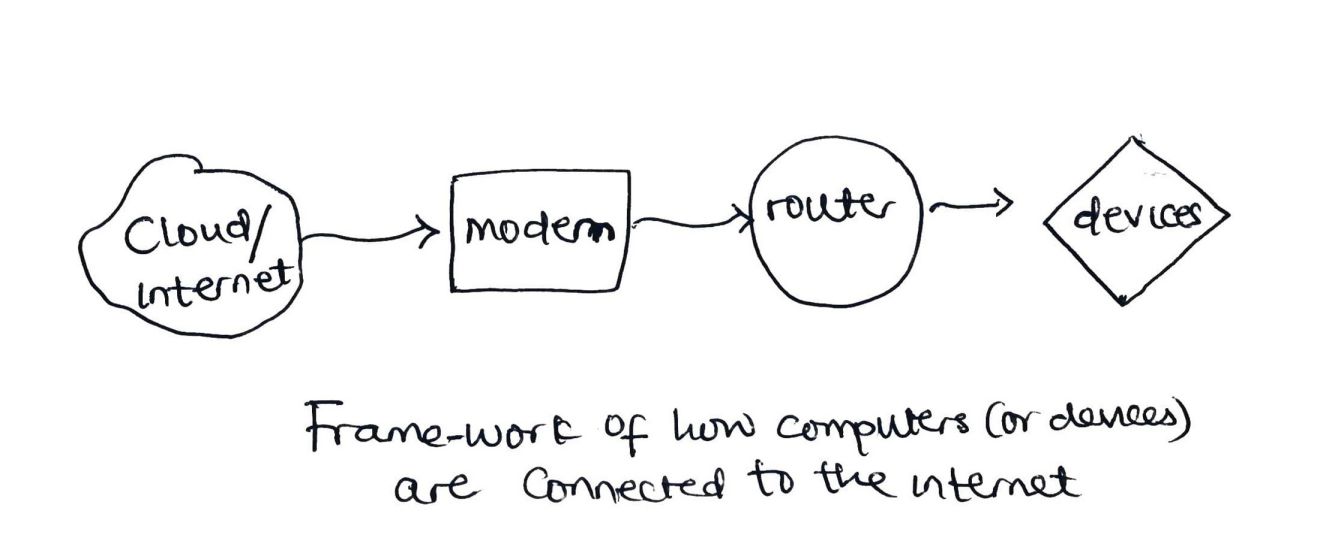 Cloud/
Internet
modem
router
devices
Frame-work of how computers (or devices)
are connected to the internet